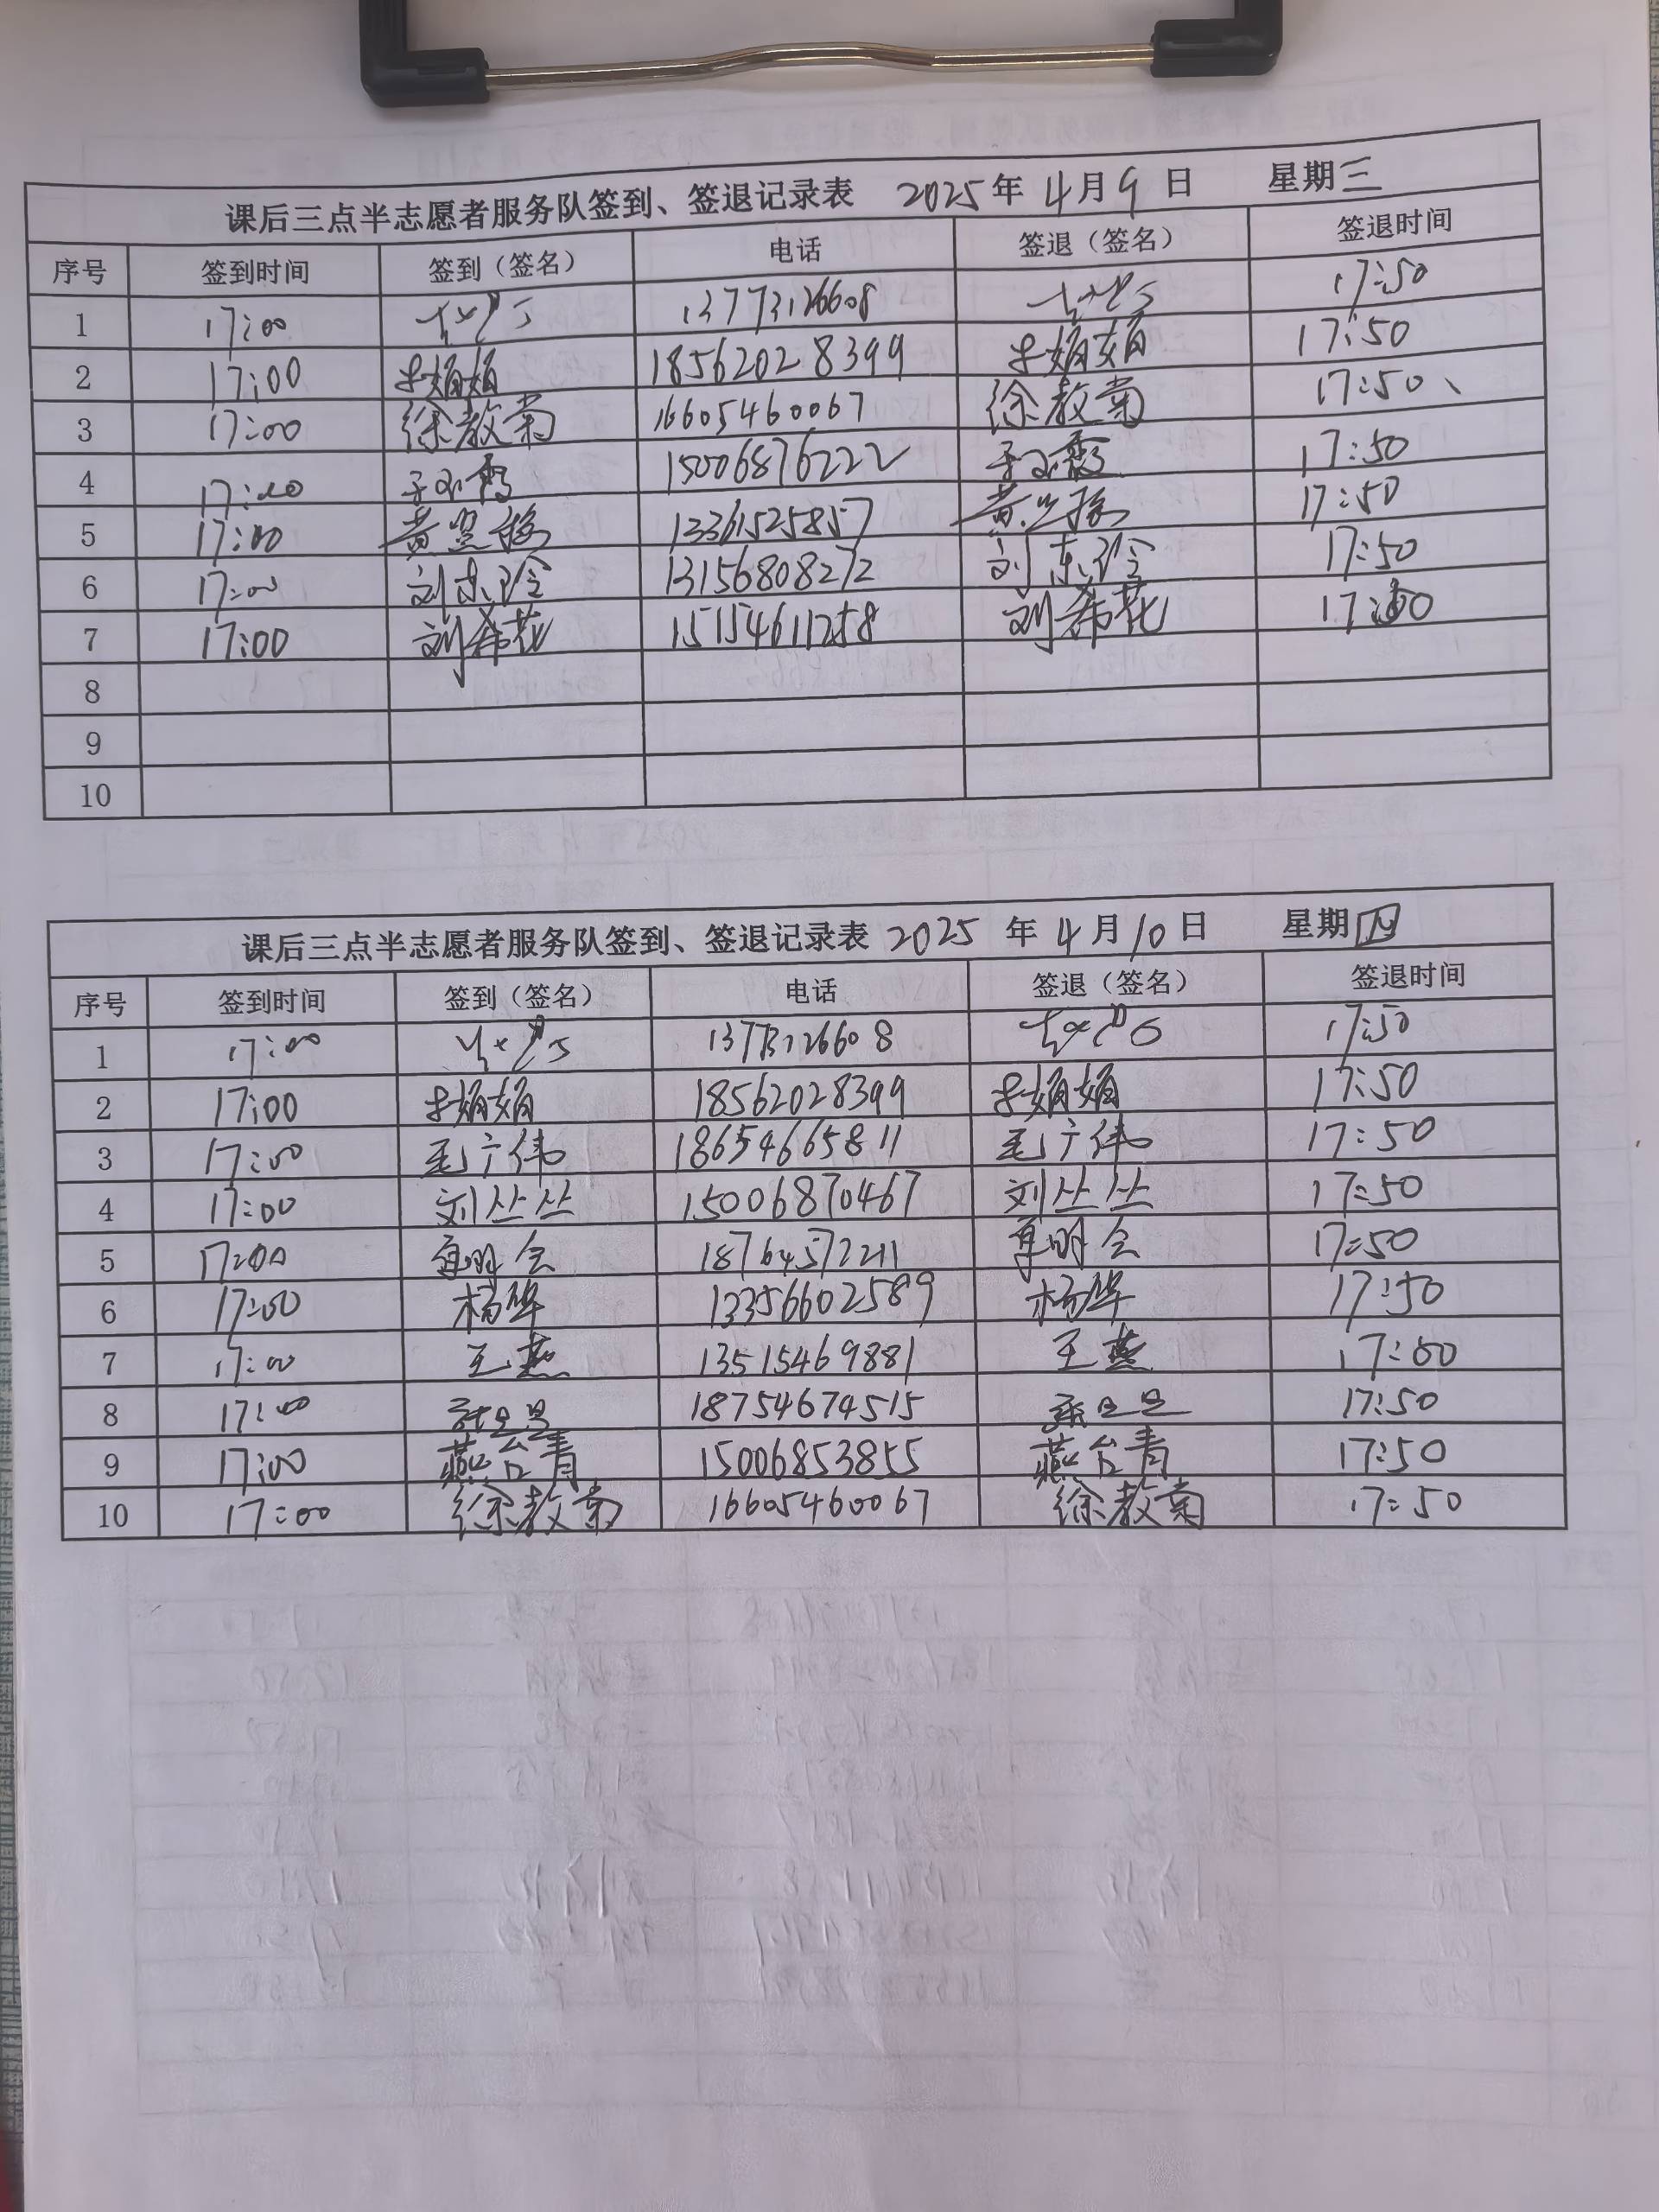 课后三点半志愿者服务队签到、签退记录表 2025年4月9日 星期三
序号 签到时间 签到（签名） 电话 签退（签名） 签退时间
1 17:00 13773126608 17:50
2 17:00 娟娟 18562028399 娟娟 17:50
3 17:00 徐教菊 16605460067 徐教菊 17:50、
4 17:00 15006876222 17:50
5 17:00 黄 13361525857 黄 17:50
6 17:00 刘东玲 13156808272 刘东玲 17:50
7 17:00 刘希花 15154611258 刘希花 17:50
8
9
10
课后三点半志愿者服务队签到、签退记录表 2025年4月10日 星期四
序号 签到时间 签到（签名） 电话 签退（签名） 签退时间
1 17:00 13773126608 17:50
2 17:00 娟娟 18562028399 娟娟 17:50
3 17:00 毛广伟 18654665811 毛广伟 17:50
4 17:00 刘丛丛 15006870467 刘丛丛 17:50
5 17:00 明会 18764572211 明会 17:50
6 17:00 杨华 13356602589 杨华 17:50
7 17:00 王燕 13515469881 王燕 17:50
8 17:00 18754674515 17:50
9 17:00 燕台青 15006853855 燕台青 17:50
10 17:00 徐教菊 16605460067 徐教菊 17:50